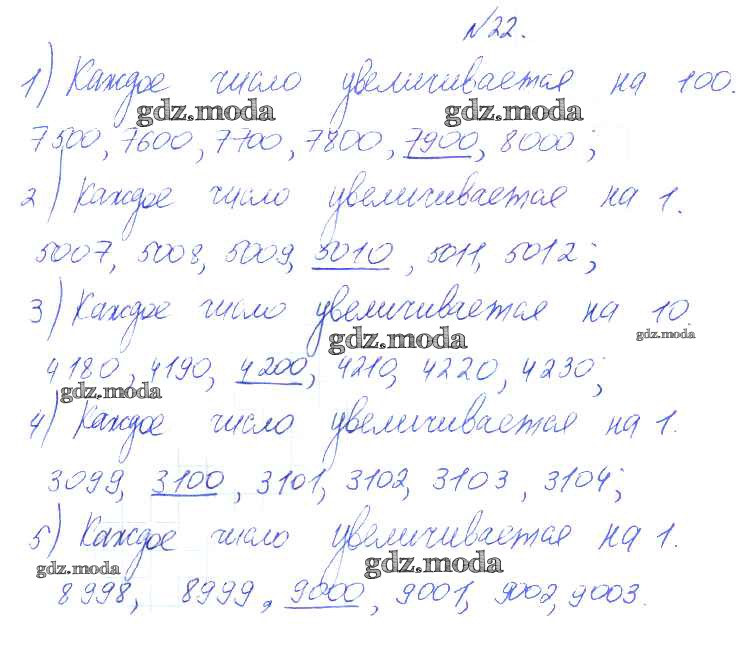 №22.
1) Каждое число увеличивается на 100.
gdz.moda gdz.moda
7500, 7600, 7700, 7800, 7900, 8000;
2) Каждое число увеличивается на 1.
5007, 5008, 5009, 5010, 5011, 5012;
3) Каждое число увеличивается на 10.
gdz.moda gdz.moda
4180, 4190, 4200, 4210, 4220, 4230;
gdz.moda
4) Каждое число увеличивается на 1.
3099, 3100, 3101, 3102, 3103, 3104;
5) Каждое число увеличивается на 1.
gdz.moda gdz.moda
8998, 8999, 9000, 9001, 9002, 9003.